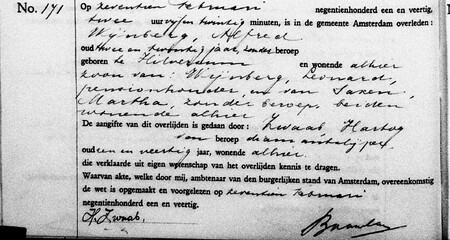 No. 171
Op zeventien februari negentienhonderd een en veertig,
twee uur vijf en twintig minuten, is in de gemeente Amsterdam overleden:
Wijnberg, Alfred
oud twee en twintig jaar, zonder beroep
geboren te Hilversum en wonende alhier
zoon van: Wijnberg, Leonard,
pensionhouder, en van Saxen,
Martha, zonder beroep, beiden
wonende alhier
De aangifte van dit overlijden is gedaan door: Zwaab Hartog
van beroep
oud een en veertig jaar, wonende alhier
die verklaarde uit eigen wetenschap van het overlijden kennis te dragen.
Waarvan akte, welke door mij, ambtenaar van den burgerlijken stand van Amsterdam, overeenkomstig
de wet is opgemaakt en voorgelezen op zeventien februari
negentienhonderd een en veertig.
H. Zwaab.